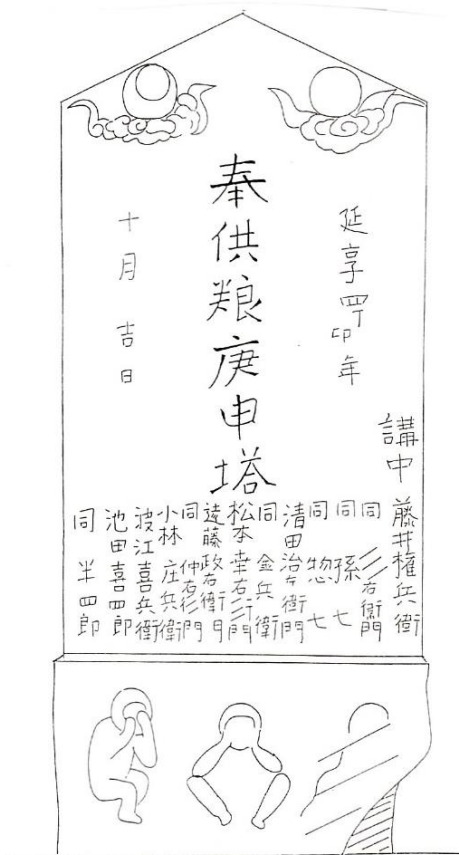 延享四丁卯年
奉供粮庚申塔
十月 吉日
講中
藤井権兵衛
同 右衛門
同 孫七
同 惣七
清田治左衛門
同 金兵衛
松本幸右衛門
遠藤政右衛門
同 仲右衛門
小林庄兵衛
波江喜兵衛
池田喜四郎
同 半四郎